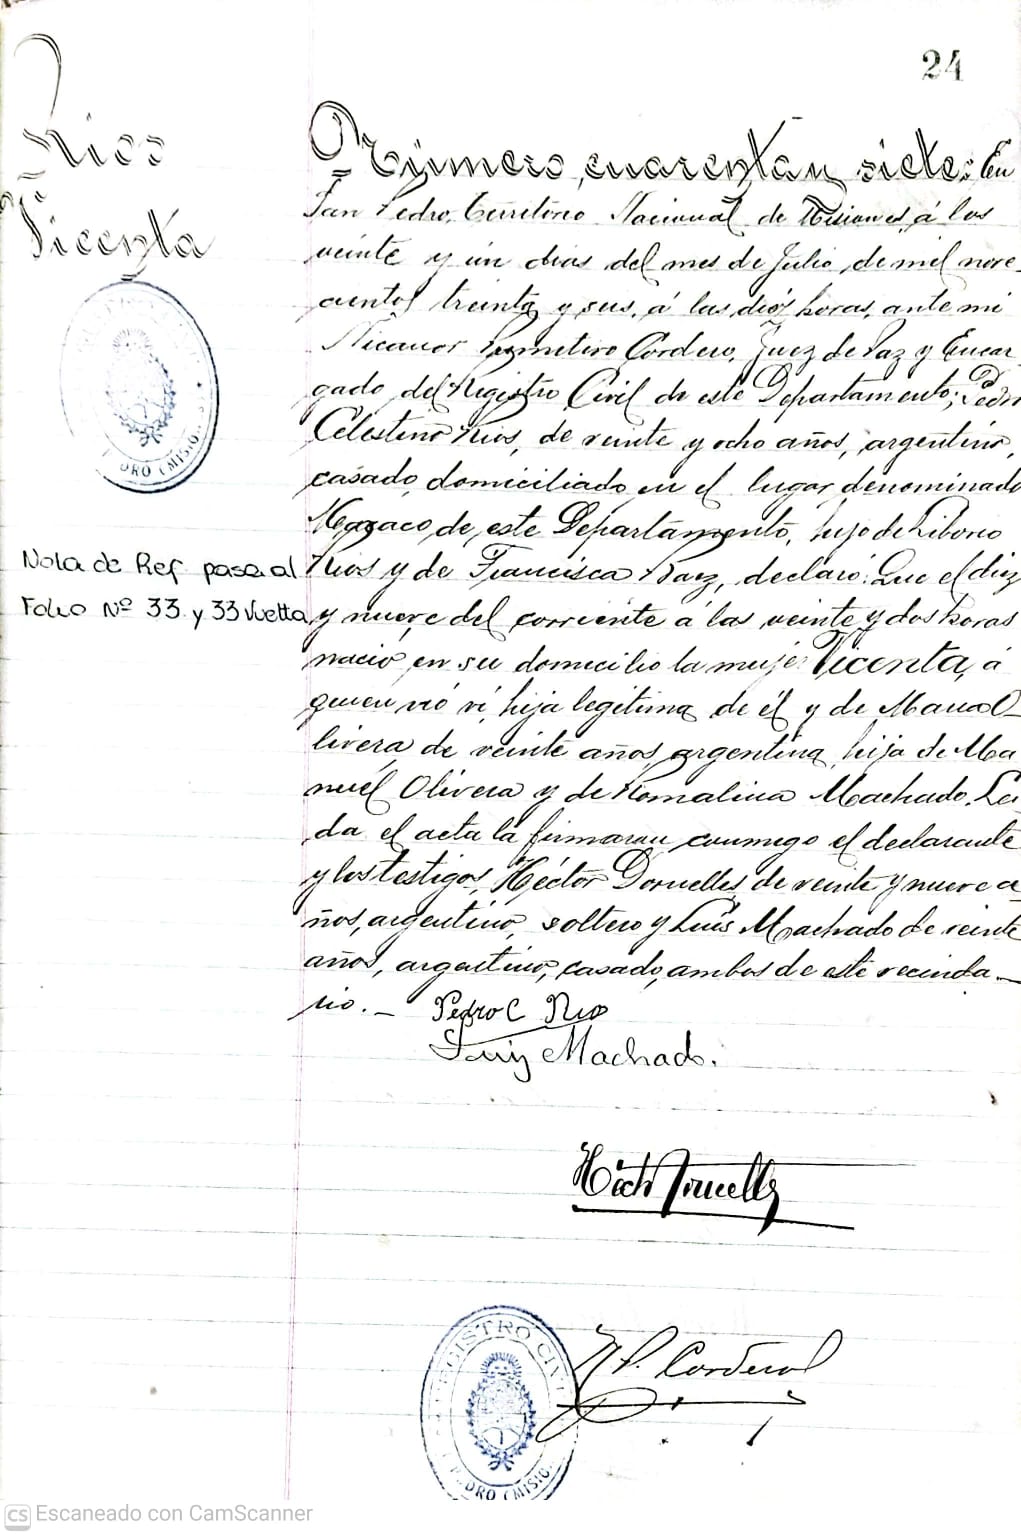 24
Rios
Vicenta
Número cuarenta y siete: En
San Pedro, Territorio Nacional de Misiones, á los
veinte y un dias del mes de Julio de mil nove-
cientos treinta y seis, á las diés horas, ante mi
Nicanor Primitivo Cordero, Juez de Paz y Encar-
gado del Registro Civil de este Departamento; Pedro
Celestino Rios, de veinte y ocho años, argentino,
casado, domiciliado en el lugar denominado
de este Departamento, hijo de Liborio
Nota de Ref pasa al
Folio Nº 33 y 33 Vuelta
Rios y de Francisca Baez, declaró: Que el diez
y nueve del corriente á las veinte y dos horas
nació en su domicilio la mujer Vicenta, á
quien vió vi, hija legitima de él y de Maria O-
livera de veinte años, argentina, hija de Ma
nuél Olivera y de Romalina Machado. Lei-
da el acta la firmaron conmigo el declarante
y los testigos, Héctor Dornelles de veinte y nueve a-
ños, argentino, soltero y Luis Machado de veinte
años, argentino, casado, ambos de este vecinda-
rio.-
Pedro C Rios
Luiz Machado.
Hector Dornelles
N P. Cordero
REGISTRO CIVIL
PEDRO (MISIO
PEDRO (MISIO
CS Escaneado con CamScanner